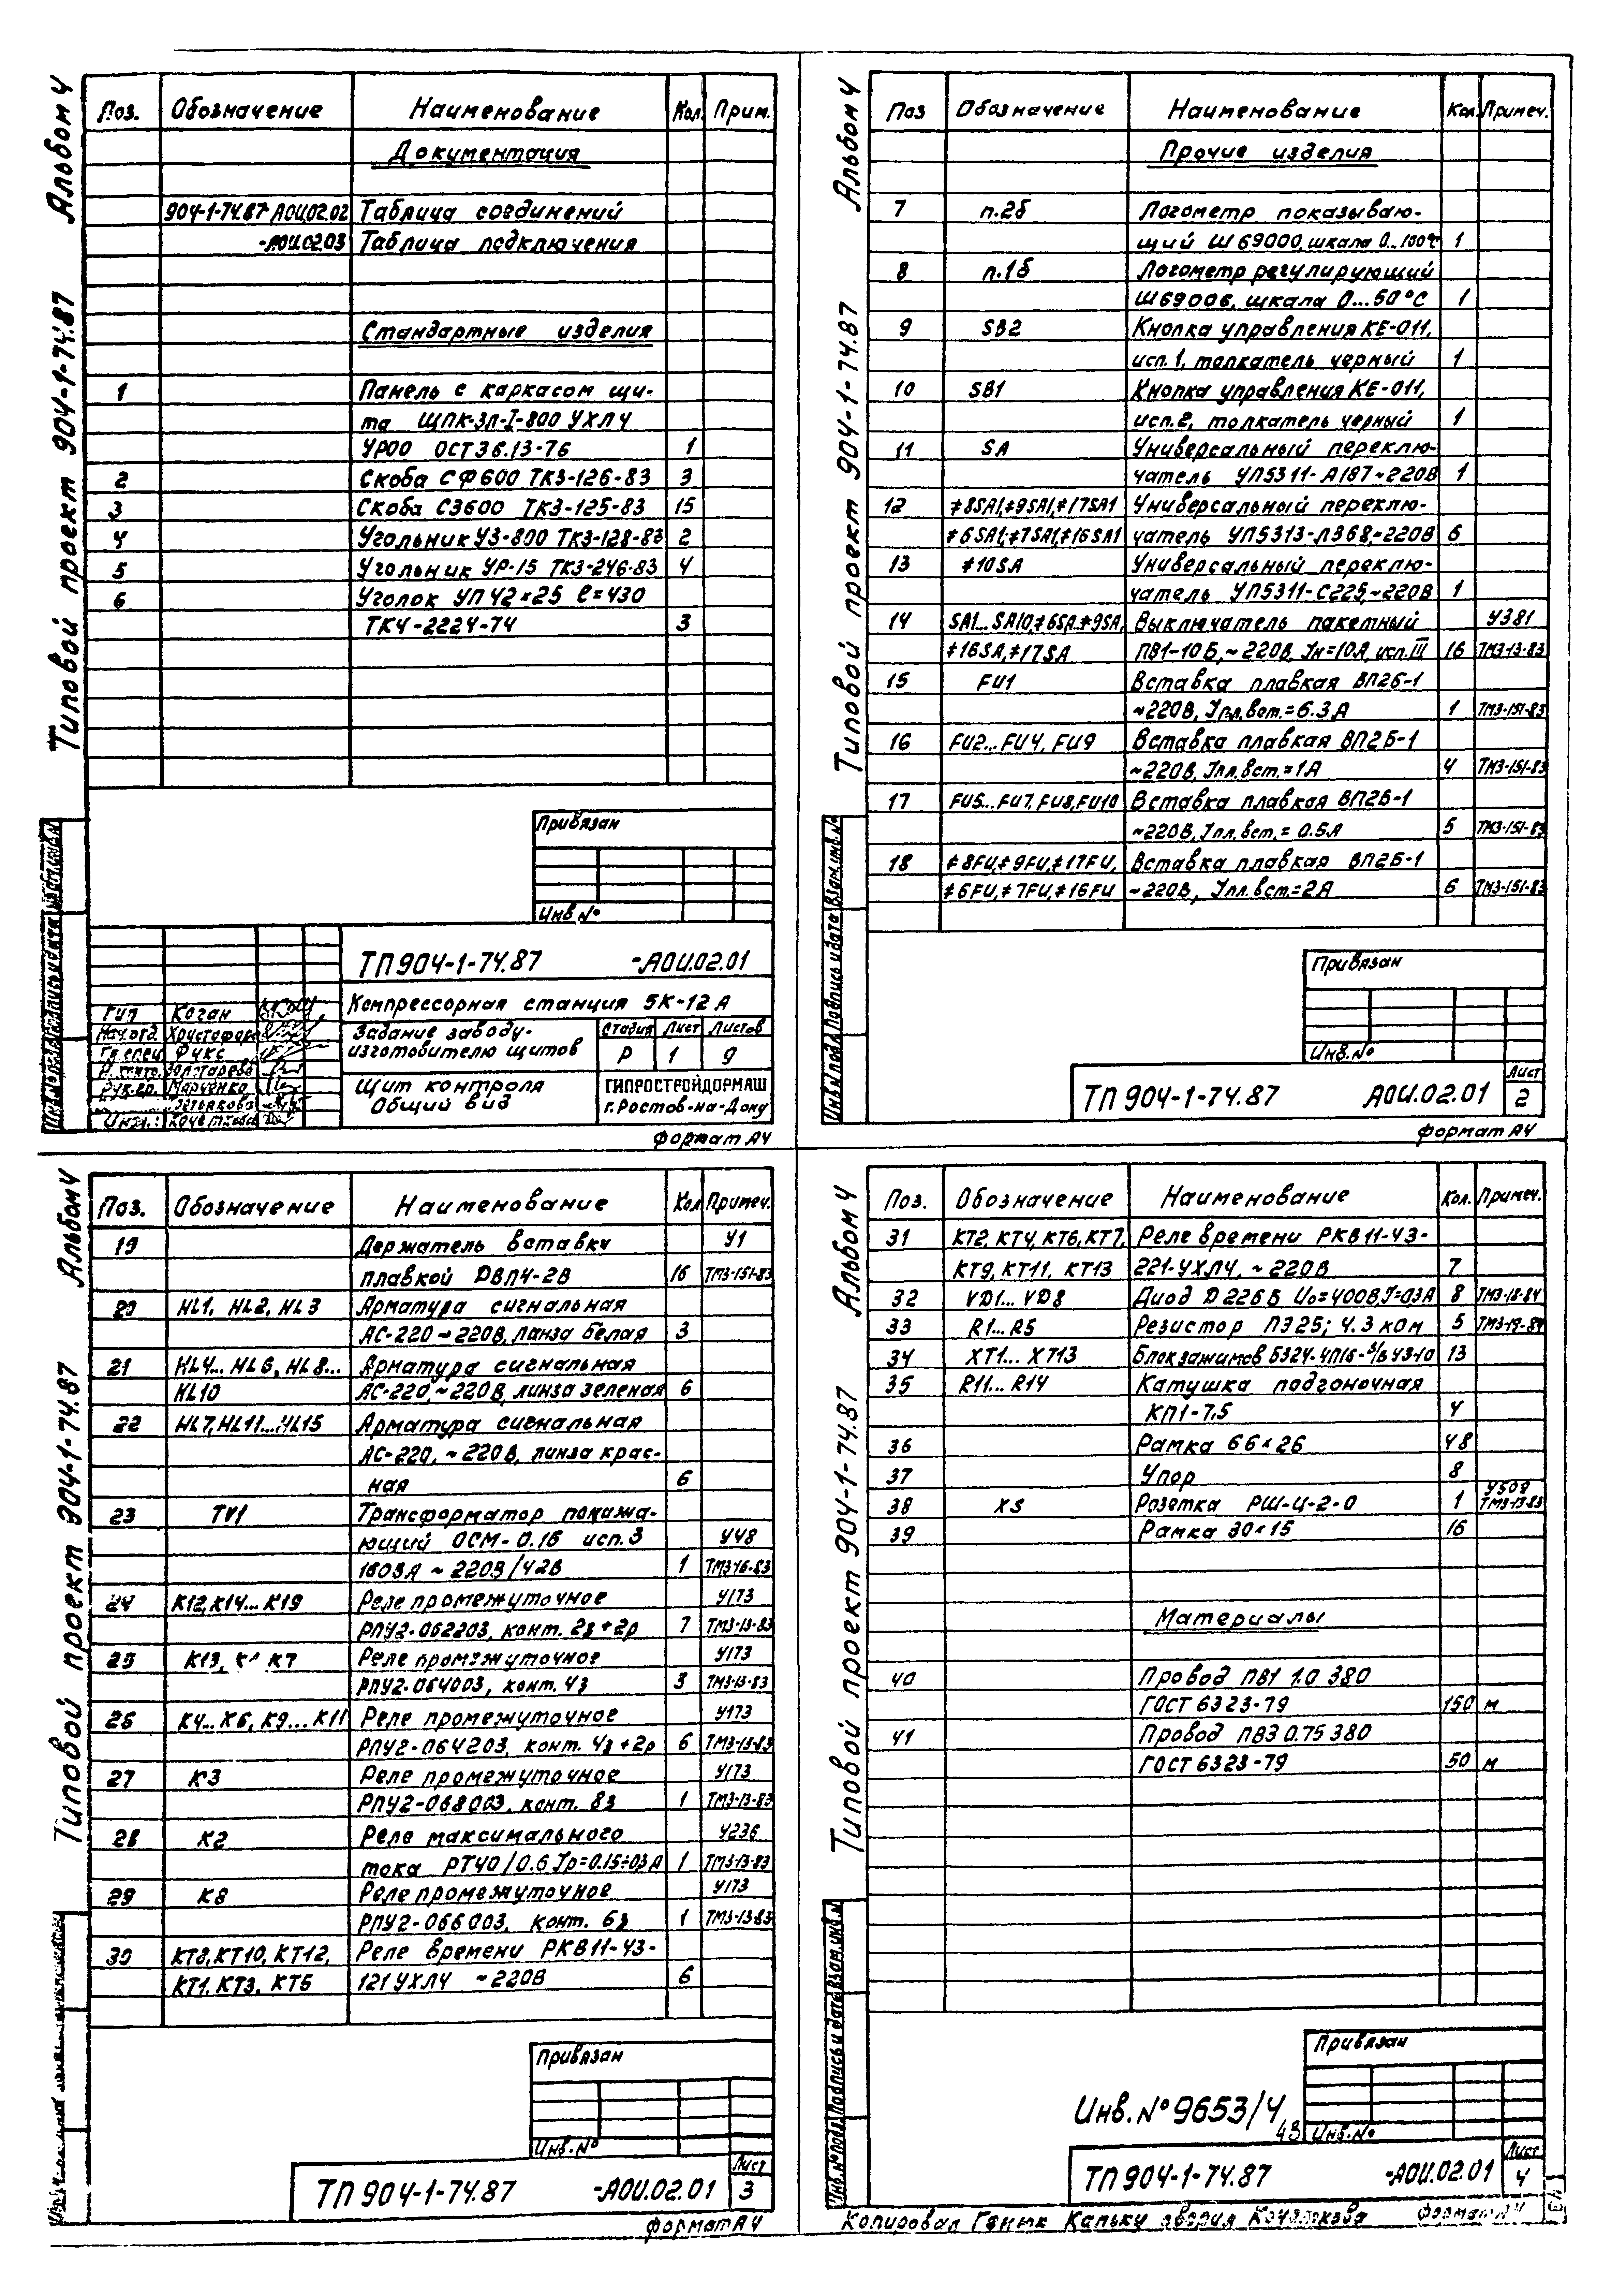 Альбом 4
Типовой проект 904-1-74.87
Поз. Обозначение Наименование Кол. Прим.
Документация
904-1-74.87-АОИ.02.02 Таблица соединений
-АОИ.02.03 Таблица подключения
Стандартные изделия
1 Панель с каркасом щи-
та ЩПК-ЗЛ-I-800 УХЛ4
УР00 ОСТ36.13-76 1
2 Скоба СФ600 ТК3-126-83 3
3 Скоба С3600 ТК3-125-83 15
4 Угольник УЗ-800 ТК3-128-83 2
5 Угольник УР-15 ТК3-246-83 4
6 Уголок УП 42×25 ℓ=430
ТК4-2224-74 3
Привязан
Инв.№
ТП 904-1-74.87 -АОИ.02.01
Компрессорная станция 5К-12А
Гип Коган
Нач.отд.
Гл.спец. Фукс
Рук.гр. Марченко
Инж.
Задание заводу-
изготовителю щитов
Стадия Лист Листов
Р 1 9
Щит контроля
Общий вид
ГИПРОСТРОЙДОРМАШ
г.Ростов-на-Дону
формат А4
Альбом 4
Типовой проект 904-1-74.87
Поз Обозначение Наименование Кол. Примеч.
Прочие изделия
7 п.2б Логометр показываю-
щий Ш 69000, шкала 0...100°С 1
8 п.1б Логометр регулирующий
Ш69006, шкала 0...50°С 1
9 SB2 Кнопка управления КЕ-011,
исп.1, толкатель черный 1
10 SB1 Кнопка управления КЕ-011,
исп.2, толкатель черный 1
11 SA Универсальный переклю-
чатель УП5311-А187 ~220В 1
12 ≠8SA1,≠9SA1,≠17SA1 Универсальный переклю-
≠6SA1,≠7SA1,≠16SA1 чатель УП5313-Л368,~220В 6
13 ≠10SA Универсальный переклю-
чатель УП5311-С225,~220В 1
14 SA1...SA10,≠6SA,≠9SA, Выключатель пакетный У381
≠16SA,≠17SA ПВ1-10Б,~220В, Iн=10А, исп.III 16 ТМ3-13-83
15 FU1 Вставка плавкая ВП2Б-1
~220В, Iпл.вст.=6.3А 1 ТМ3-151-83
16 FU2...FU4, FU9 Вставка плавкая ВП2Б-1
~220В, Iпл.вст.=1А 4 ТМ3-151-83
17 FU5...FU7,FU8,FU10 Вставка плавкая ВП2Б-1
~220В, Iпл.вст.= 0.5А 5 ТМ3-151-83
18 ≠8FU,≠9FU,≠17FU, Вставка плавкая ВП2Б-1
≠6FU,≠7FU,≠16FU ~220В, Iпл.вст.=2А 6 ТМ3-151-83
Инв.№ подл. Подпись и дата Взам.инв.№
Привязан
Инв.№
ТП 904-1-74.87 АОИ.02.01
Лист
2
формат А4
Альбом 4
Типовой проект 904-1-74.87
Поз. Обозначение Наименование Кол Примеч.
19 Держатель вставки У1
плавкой ДВП4-2В 16 ТМ3-151-83
20 HL1, HL2, HL3 Арматура сигнальная
АС-220 ~220В, линза белая 3
21 HL4...HL6, HL8... Арматура сигнальная
HL10 АС-220,~220В, линза зеленая 6
22 HL7,HL11...HL15 Арматура сигнальная
АС-220, ~220В, линза крас-
ная 6
23 TV1 Трансформатор понижа-
ющий ОСМ-0.16 исп.3 У48
160ВА ~220В/42В 1 ТМ3-16-83
24 К12,К14...К19 Реле промежуточное У173
РПУ2-062203, конт. 2з+2р 7 ТМ3-13-83
25 К13, К7 Реле промежуточное У173
РПУ2-064003, конт. 4з 3 ТМ3-13-83
26 К4...К6, К9...К11 Реле промежуточное У173
РПУ2-064203, конт. 4з+2р 6 ТМ3-13-83
27 К3 Реле промежуточное У173
РПУ2-068003, конт. 8з 1 ТМ3-13-83
28 К2 Реле максимального У236
тока РТ40/0.6 Iр=0.15÷0.3А 1 ТМ3-13-83
29 К8 Реле промежуточное У173
РПУ2-066003, конт. 6з 1 ТМ3-13-83
30 КТ8,КТ10, КТ12, Реле времени РКВ11-43-
КТ1, КТ3, КТ5 121 УХЛ4 ~220В 6
Привязан
Инв.№
ТП 904-1-74.87 -АОИ.02.01
Лист
3
формат А4
Альбом 4
Типовой проект 904-1-74.87
Поз. Обозначение Наименование Кол. Примеч.
31 КТ2, КТ4, КТ6, КТ7, Реле времени РКВ11-43-
КТ9, КТ11, КТ13 221-УХЛ4, ~220В 7
32 VD1...VD8 Диод Д226Б Uо=400В,I=0.3А 8 ТМ3-18-84
33 R1...R5 Резистор ПЭ25; 4.3 кОм 5 ТМ3-19-84
34 ХТ1...ХТ13 Блок зажимов Б324-4П16-В/В У3-10 13
35 R11...R14 Катушка подгоночная
КП1-7,5 4
36 Рамка 66×26 48
37 Упор 8
38 XS Розетка РШ-Ц-2-0 1 У509 ТМ3-13-83
39 Рамка 30×15 16
Материалы
40 Провод ПВ1 1.0 380
ГОСТ 6323-79 150 м
41 Провод ПВ3 0.75 380
ГОСТ 6323-79 50 м
Инв.№ подл. Подпись и дата Взам.инв.№
Привязан
Инв.№
Инв.№ 9653/4
43
ТП 904-1-74.87 -АОИ.02.01
Лист
4
Копировал Генык Кальку сверил
формат А4
43